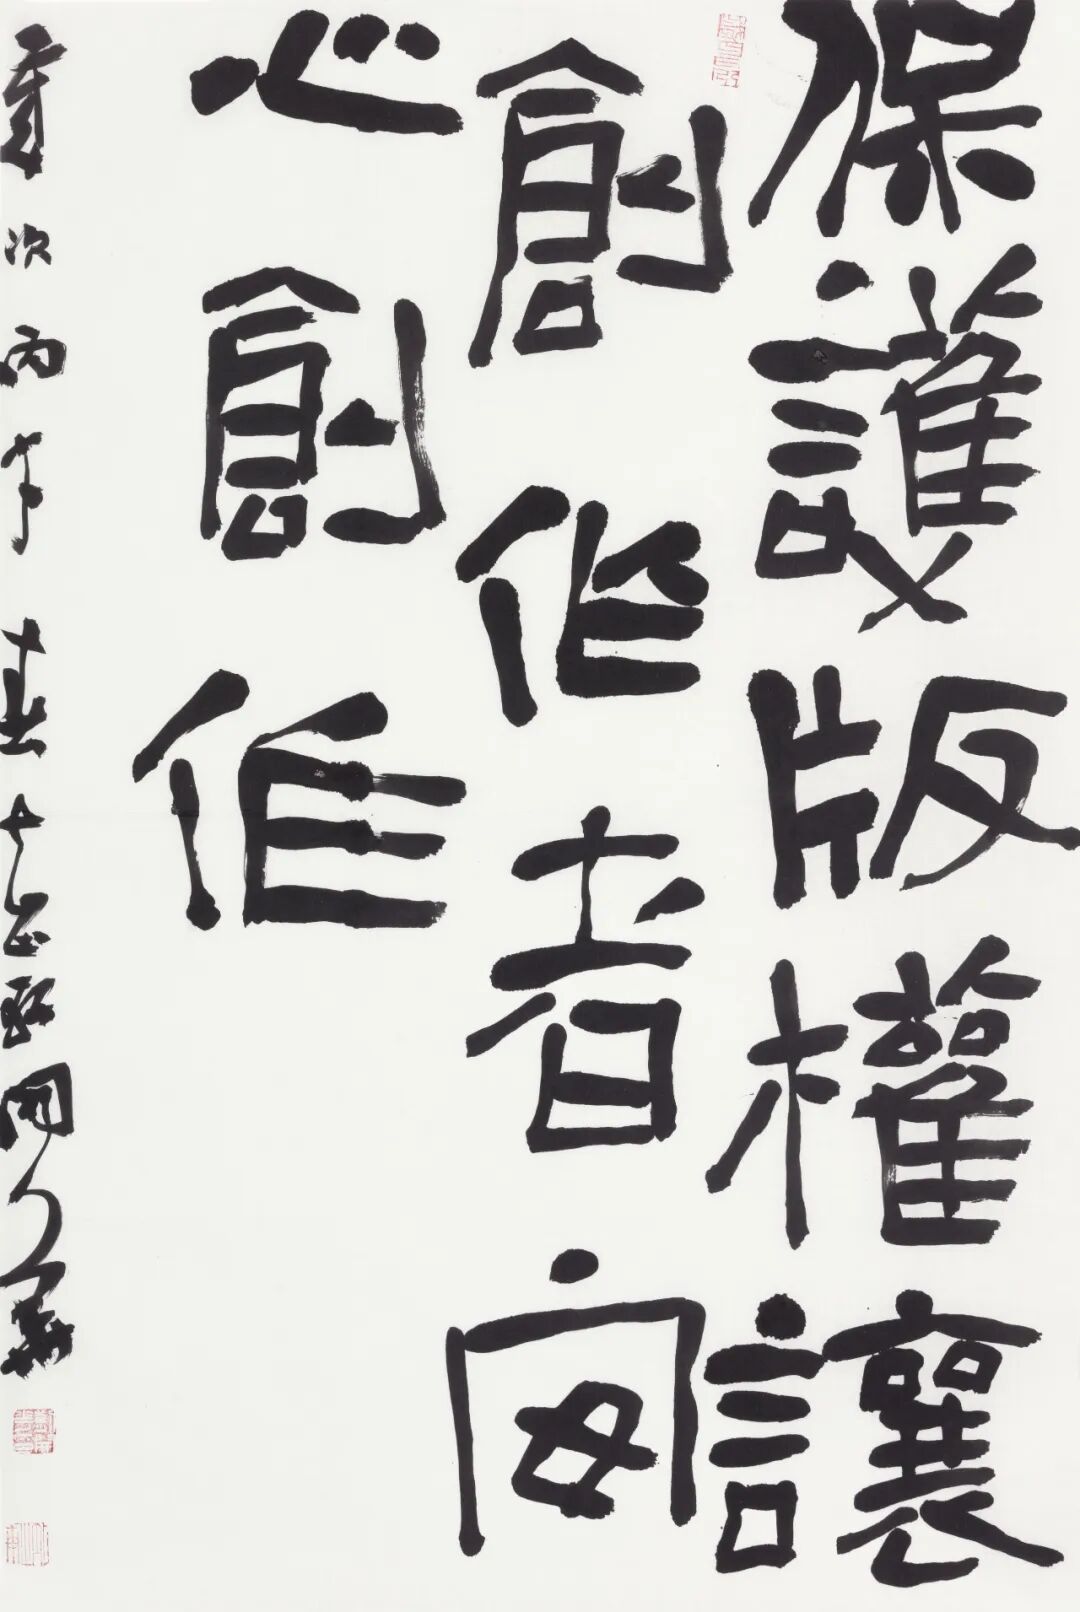 保護版權讓
創作者安
心創作
歲次丙午春